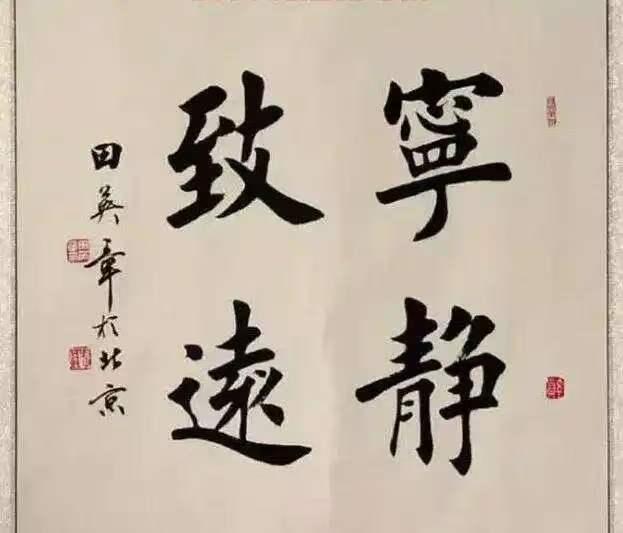 寧靜
致遠
田英章於北京